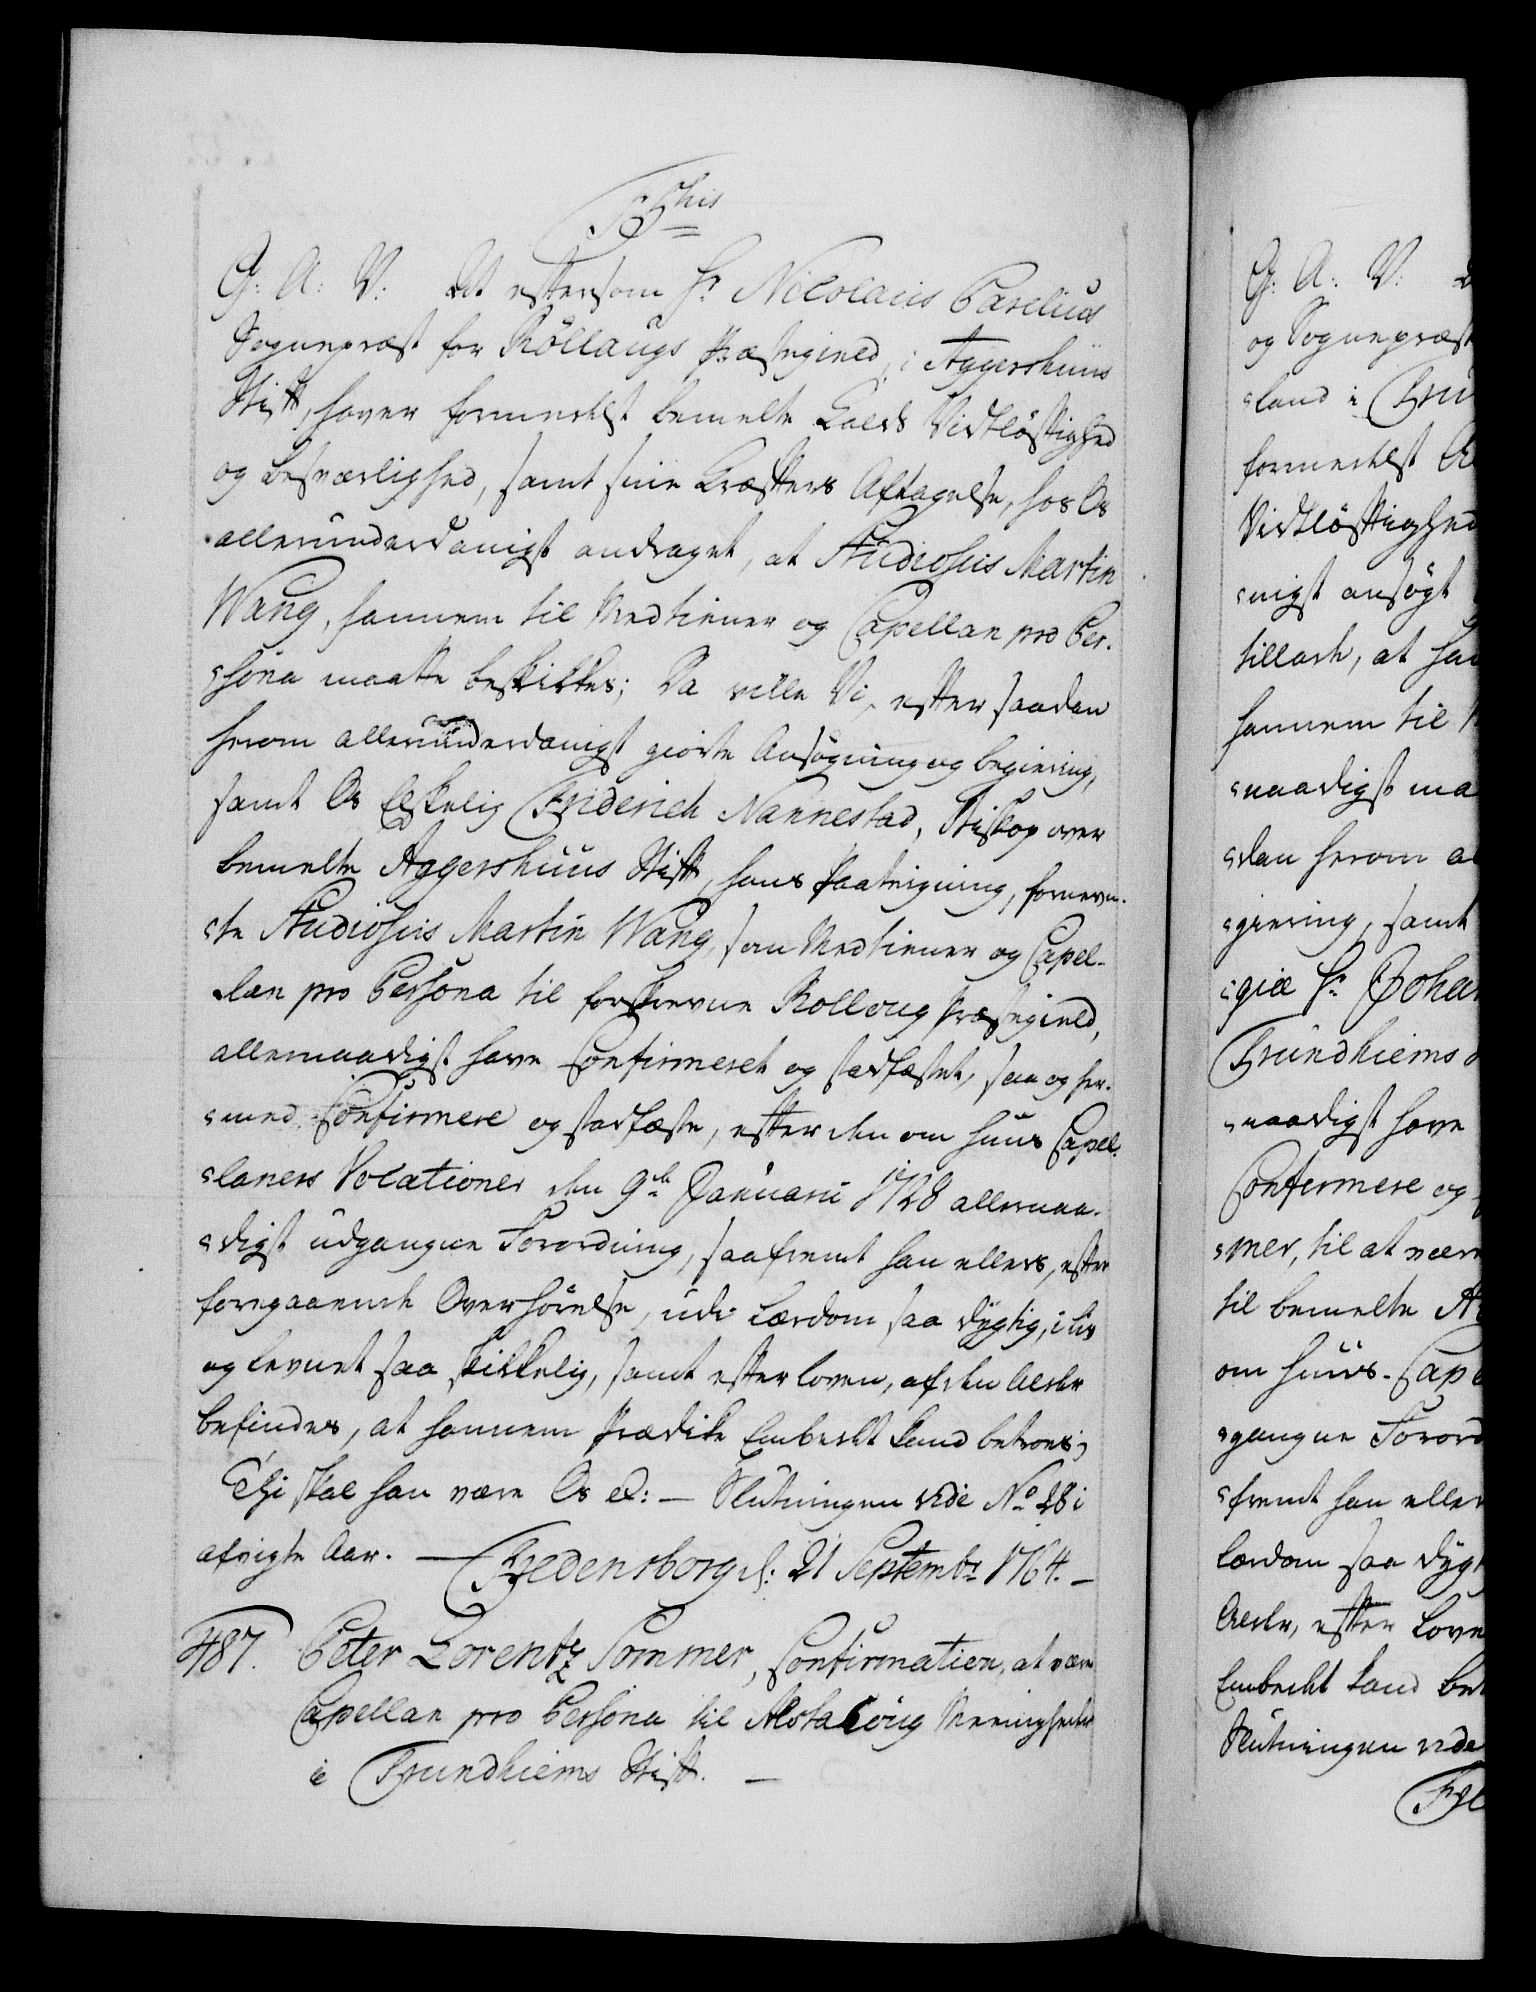 G: A: V: At eftersom Hr Nicolaus Parelius
Sognepræst for Røllaugs Præstegield, i Aggershuus
Stift, haver formedelst bemelte Kalds Vidtløftighed
og besværlighed, samt sine Kræfters Aftagelse, hos Os
allerunderdanigst andraget, at Studiosus Martin
Wang, hannem til Medtiener og Capellan pro Per-
sona maatte beskikkes; Da ville Vi, efter saadan
herom allerunderdanigst giorte Ansøgning og begiering,
samt Os Elskelig Friderich Nannestad, Biskop over
bemelte Aggershuus Stift, hans Paategning, fornevn-
te Studiosus Martin Wang, som Medtiener og Capel-
lan pro Persona til forskrevne Rolloug Præstegield,
allernaadigst have Confirmeret og stadfæstet, saa og her-
med Confirmere og stadfæste, efter den om Huus Capel-
laners Vocationer den 9de Januarii 1728 allernaa-
digst udgangne Forordning, saafremt han ellers, efter
foregaaende Overhørelse, udi Lærdom saa dygtig, i Liv
og Levnet saa skikkelig, samt efter Loven, af den Alder
befindes, at hannem Prædike Embedet kand betroes;
Thi skal han være Os &: — Slutningen vide No 28 i
afvigte Aar. — Fredensborg d: 21 Septembr 1764. —
487. Peter Lorentz Sommer, Confirmation, at være
Capellan pro Persona til Alstahoug Meenigheder
i Trundhiems Stift. —
G: A: V:
og Sognepræst
land i Tru
formedelst
Vidtløftighed
nigst ansøgt
tillade, at han
hannem til
naadigst ma
dan herom al
giering, samt
giæ Hr Johan
Trundhiems
naadigst have
Confirmere og
mer, til at være
til bemelte
om Huus-Cape
gangne Forord
fremt han eller
Lærdom saa dyg
Alder, efter Love
Embedet kand bet
Slutningen vide
Fre